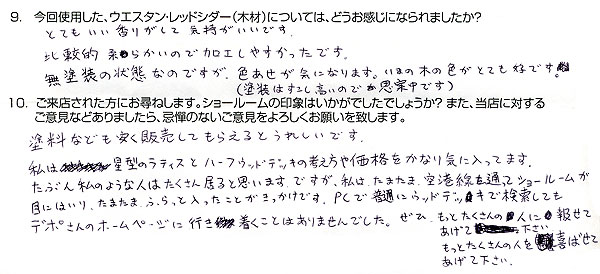 9. 今回使用した、ウエスタン・レッドシダー(木材)については、どうお感じになられましたか?
とてもいい香りがして気持がいいです。
比較的柔らかいので加工しやすかったです。
無塗装の状態なのですが、色あせが気になります。いまの木の色がとても好です。
(塗装はすこし高いのでか思案中です)
10. ご来店された方にお尋ねします。ショールームの印象はいかがでしたでしょうか? また、当店に対する
ご意見などありましたら、忌憚のないご意見をよろしくお願いを致します。
塗料なども安く販売してもらえるとうれしいです。
私は 星型のラティスとハーフウッドデッキの考え方や価格をかなり気に入ってます。
たぶん私のような人はたくさん居ると思います。ですが、私は、たまたま、空港線を通ってショールームが
目にはいり、たまたま、ふらっと入ったことがきっかけです。PCで普通にウッドデッキで検索しても
デポさんのホームページに行き着くことはありませんでした。ぜひ、もっとたくさんの人に報せて
あげて下さい
もっとたくさんの人を喜ばせて
あげて下さい。